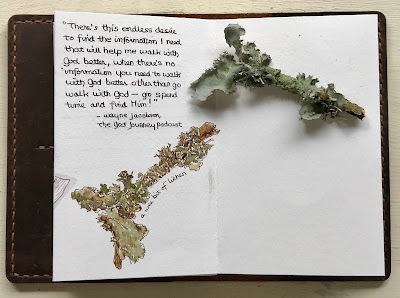 "There's this endless desire
to find the information I need
that will help me walk with
God better, when there's no
information you need to walk
with God better other than go
walk with God – go spend
time and find Him!"
- Wayne Jacobsen
The God Journey Podcast
a wee bit of lichen